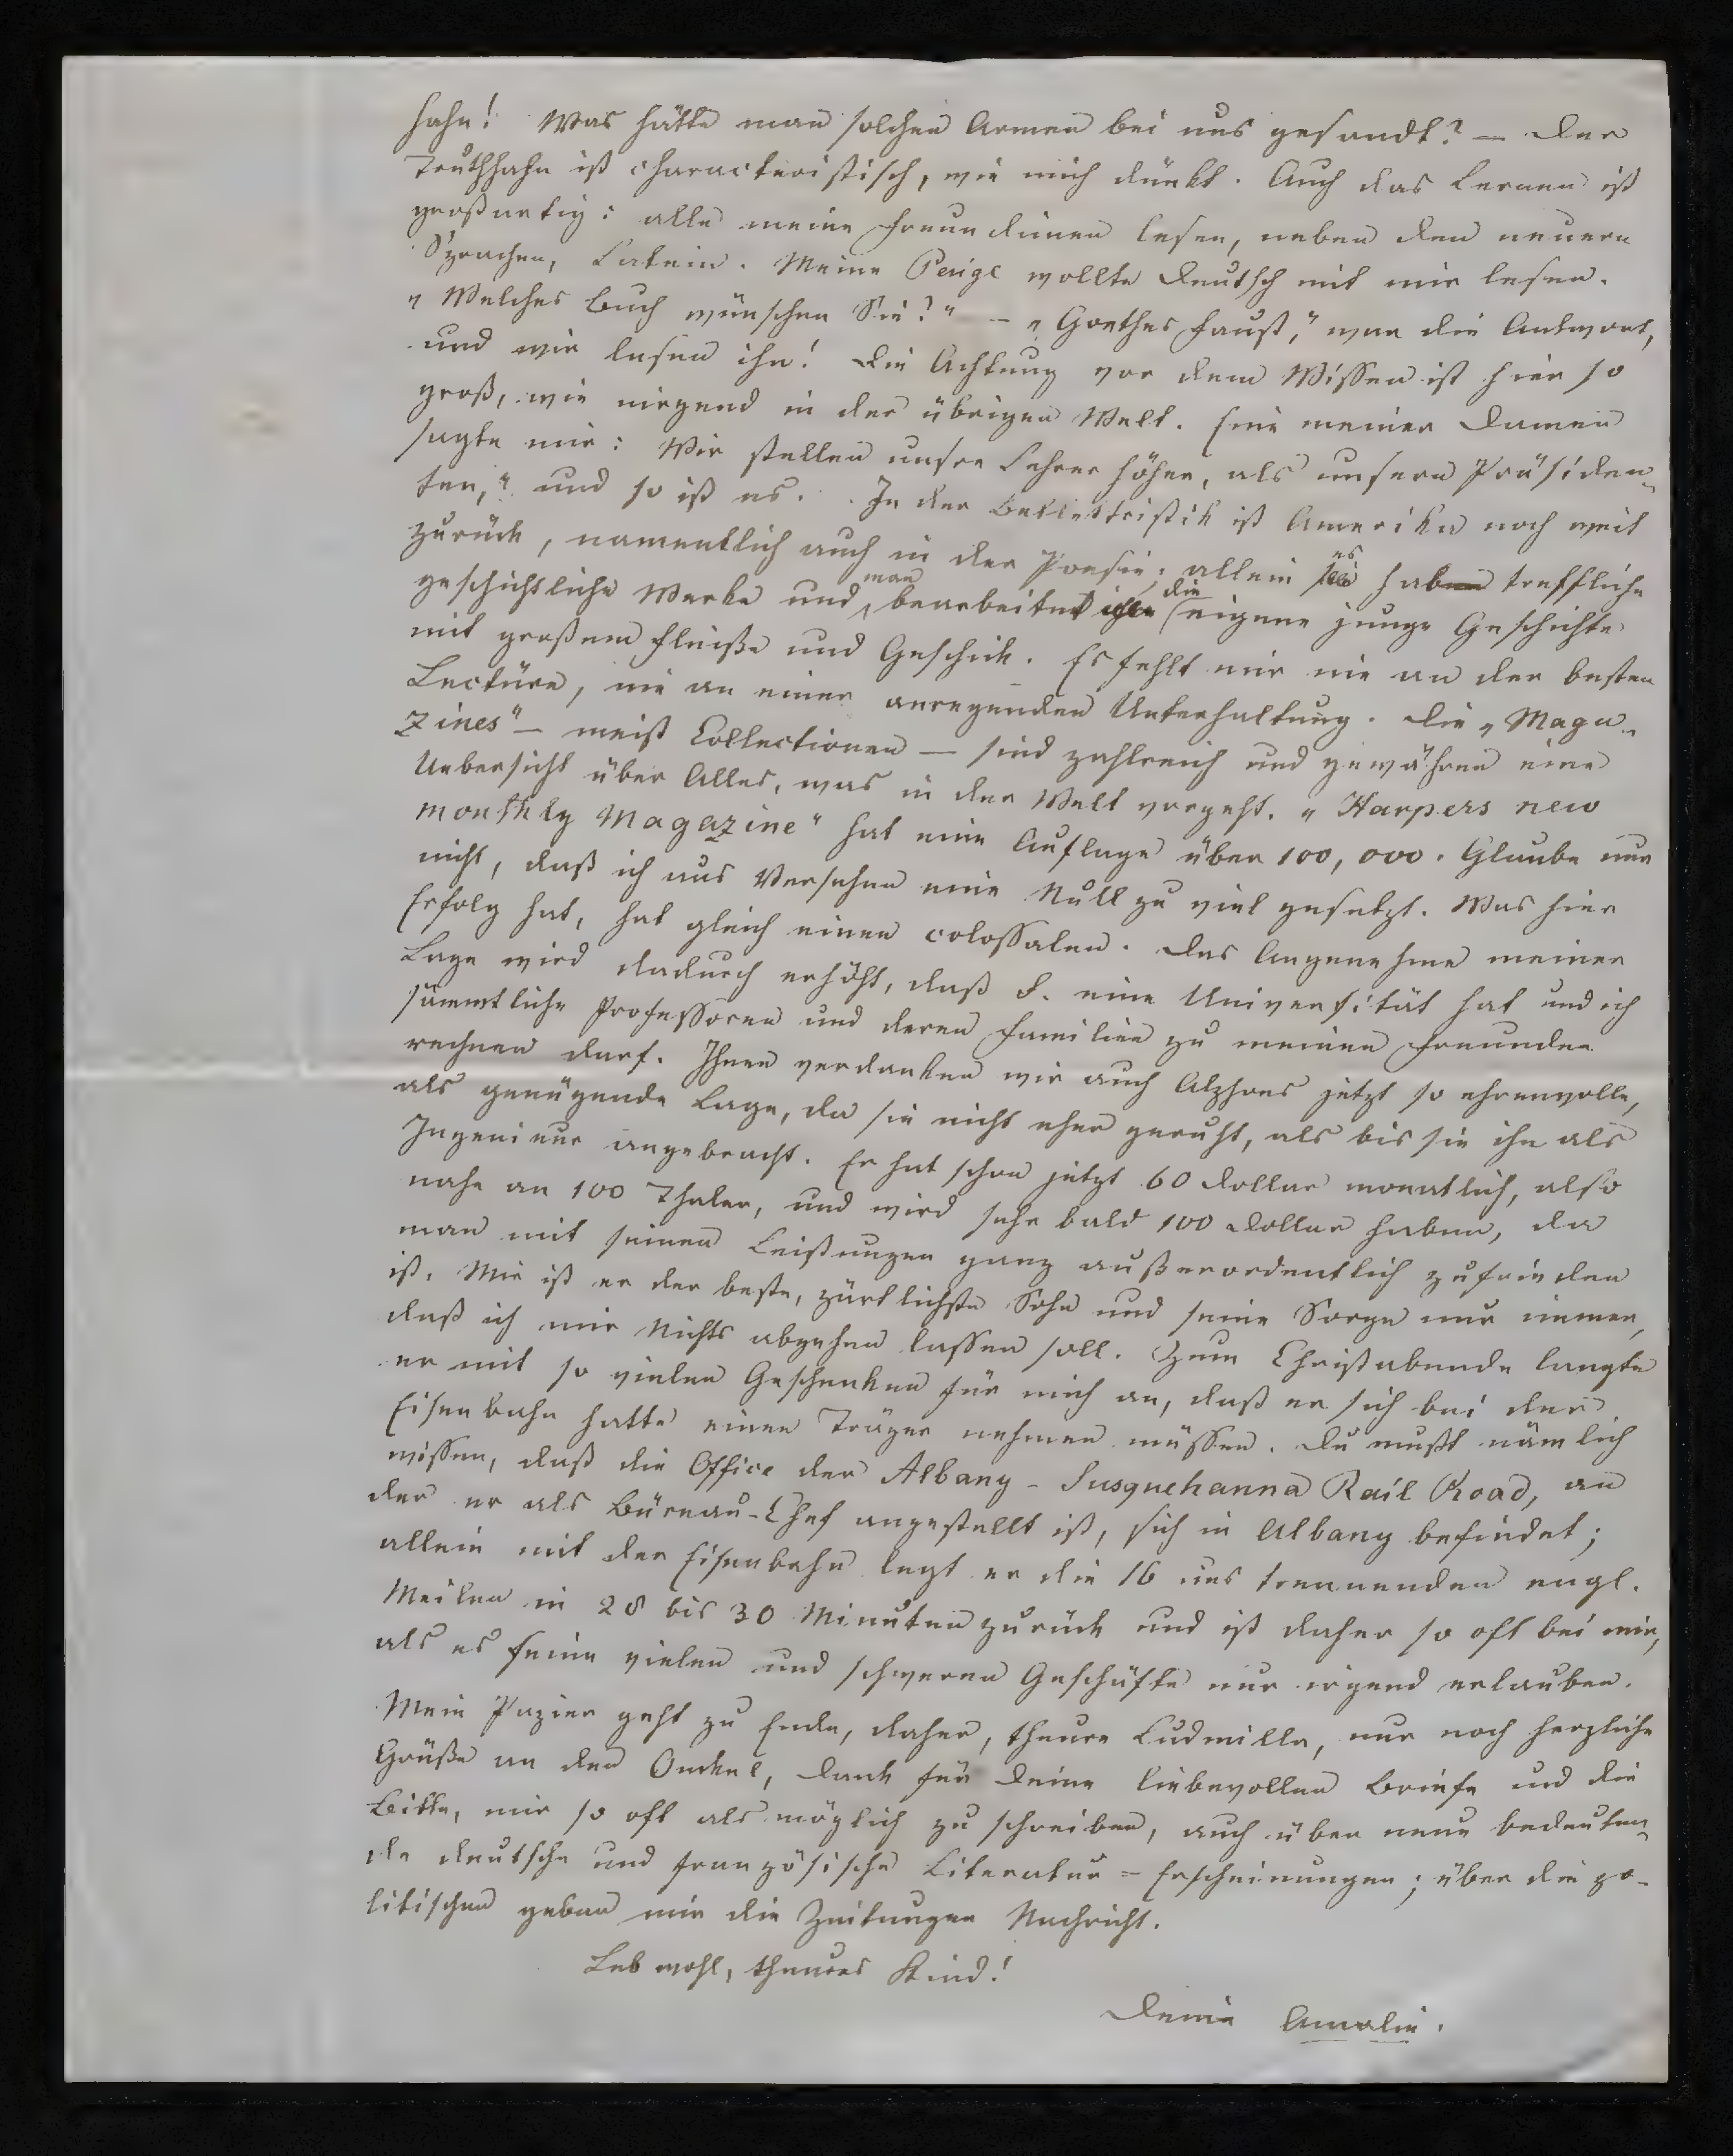 hahn! Was hätte man solchen Armen bei uns gesandt? — Der
Truthhahn ist characteristisch, wie mich dünkt. Auch das Lernen ist
großartig: alle meine Freundinnen lesen, neben den neuern
Sprachen, Latein. Meine Peige wollte Deutsch mit mir lesen.
„Welches Buch wünschen Sie?“ – „Goethes Faust,“ war die Antwort,
und wir lesen ihn! Die Achtung vor dem Wissen ist hier so
groß, wie nirgend in der übrigen Welt. Eine meiner Damen
sagte mir: Wir stellen unsre Lehrer höher, als unsern Präsiden-
ten,“ und so ist es. In der Belletristik ist Amerika noch weit
zurück, namentlich auch in der Poesie; allein es hat treffliche
geschichtliche Werke und man bearbeitet die eigene junge Geschichte
mit großem Fleiße und Geschick. Es fehlt mir nie an der besten
Lectüre, nie an einer anregenden Unterhaltung. Die „Maga-
zines“ — meist Collectionen — sind zahlreich und gewähren eine
Uebersicht über Alles, was in der Welt vorgeht. „Harpers new
monthly Magazine“ hat eine Auflage über 100,000. Glaube nur
nicht, daß ich aus Versehen eine Null zu viel gesetzt. Was hier
Erfolg hat, hat gleich einen colossalen. Das Angenehme meiner
Lage wird dadurch erhöht, daß S. eine Universität hat und ich
sämmtliche Professoren und deren Familien zu meinen Freunden
rechnen darf. Ihnen verdanken wir auch Alphons jetzt so ehrenvolle,
als genügende Lage, da sie nicht eher geruht, als bis sie ihn als
Ingenieur angebracht. Er hat schon jetzt 60 Dollar monatlich, also
nahe an 100 Thaler, und wird sehr bald 100 Dollar haben, da
man mit seinen Leistungen ganz außerordentlich zufrieden
ist. Mir ist er der beste, zärtlichste Sohn und seine Sorge nur immer,
daß ich mir Nichts abgehen lassen soll. Zum Christabende langte
er mit so vielen Geschenken für mich an, daß er sich bei der
Eisenbahn hatte einen Träger nehmen müssen. Du mußt nämlich
wissen, daß die Office der Albany – Susquehanna Rail Road, an
der er als Büreau-Chef angestellt ist, sich in Albany befindet;
allein mit der Eisenbahn legt er die 16 uns trennenden engl.
Meilen in 28 bis 30 Minuten zurück und ist daher so oft bei mir,
als es seine vielen und schweren Geschäfte nur irgend erlauben.
Mein Papier geht zu Ende, daher, theure Ludmilla, nur noch herzliche
Grüße an den Onckel, Dank für Deine liebevollen Briefe und die
Bitte, mir so oft als möglich zu schreiben, auch über neue bedeuten-
de deutsche und französische Literatur-Erscheinungen; über die po-
litischen geben mir die Zeitungen Nachricht.
Leb wohl, theures Kind!
Deine Amalie.